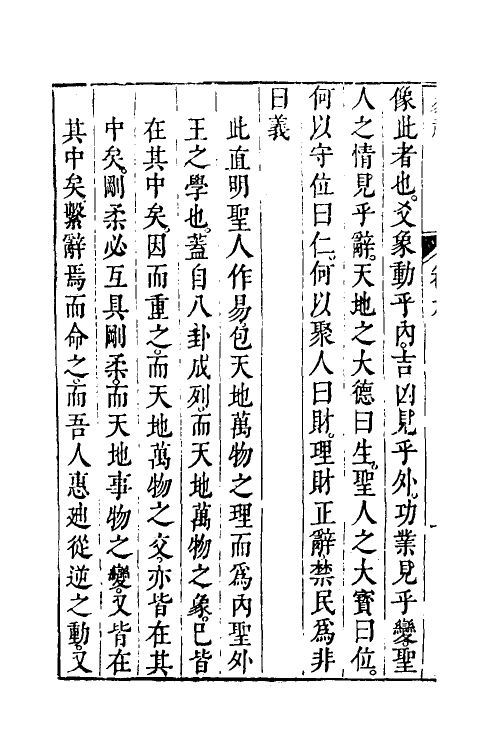 像此者也。爻象動乎內。吉凶見乎外。功業見乎變。聖
人之情見乎辭。天地之大德曰生。聖人之大寶曰位。
何以守位曰仁。何以聚人曰財。理財正辭禁民爲非
曰義
此直明聖人作易。包天地萬物之理而爲內聖外
王之學也。蓋自八卦成列。而天地萬物之象。已皆
在其中矣。因而重之。而天地萬物之交。亦皆在其
中矣。剛柔必互具剛柔。而天地事物之變。又皆在
其中矣。繫辭焉而命之。而吾人惠迪從逆之動。又